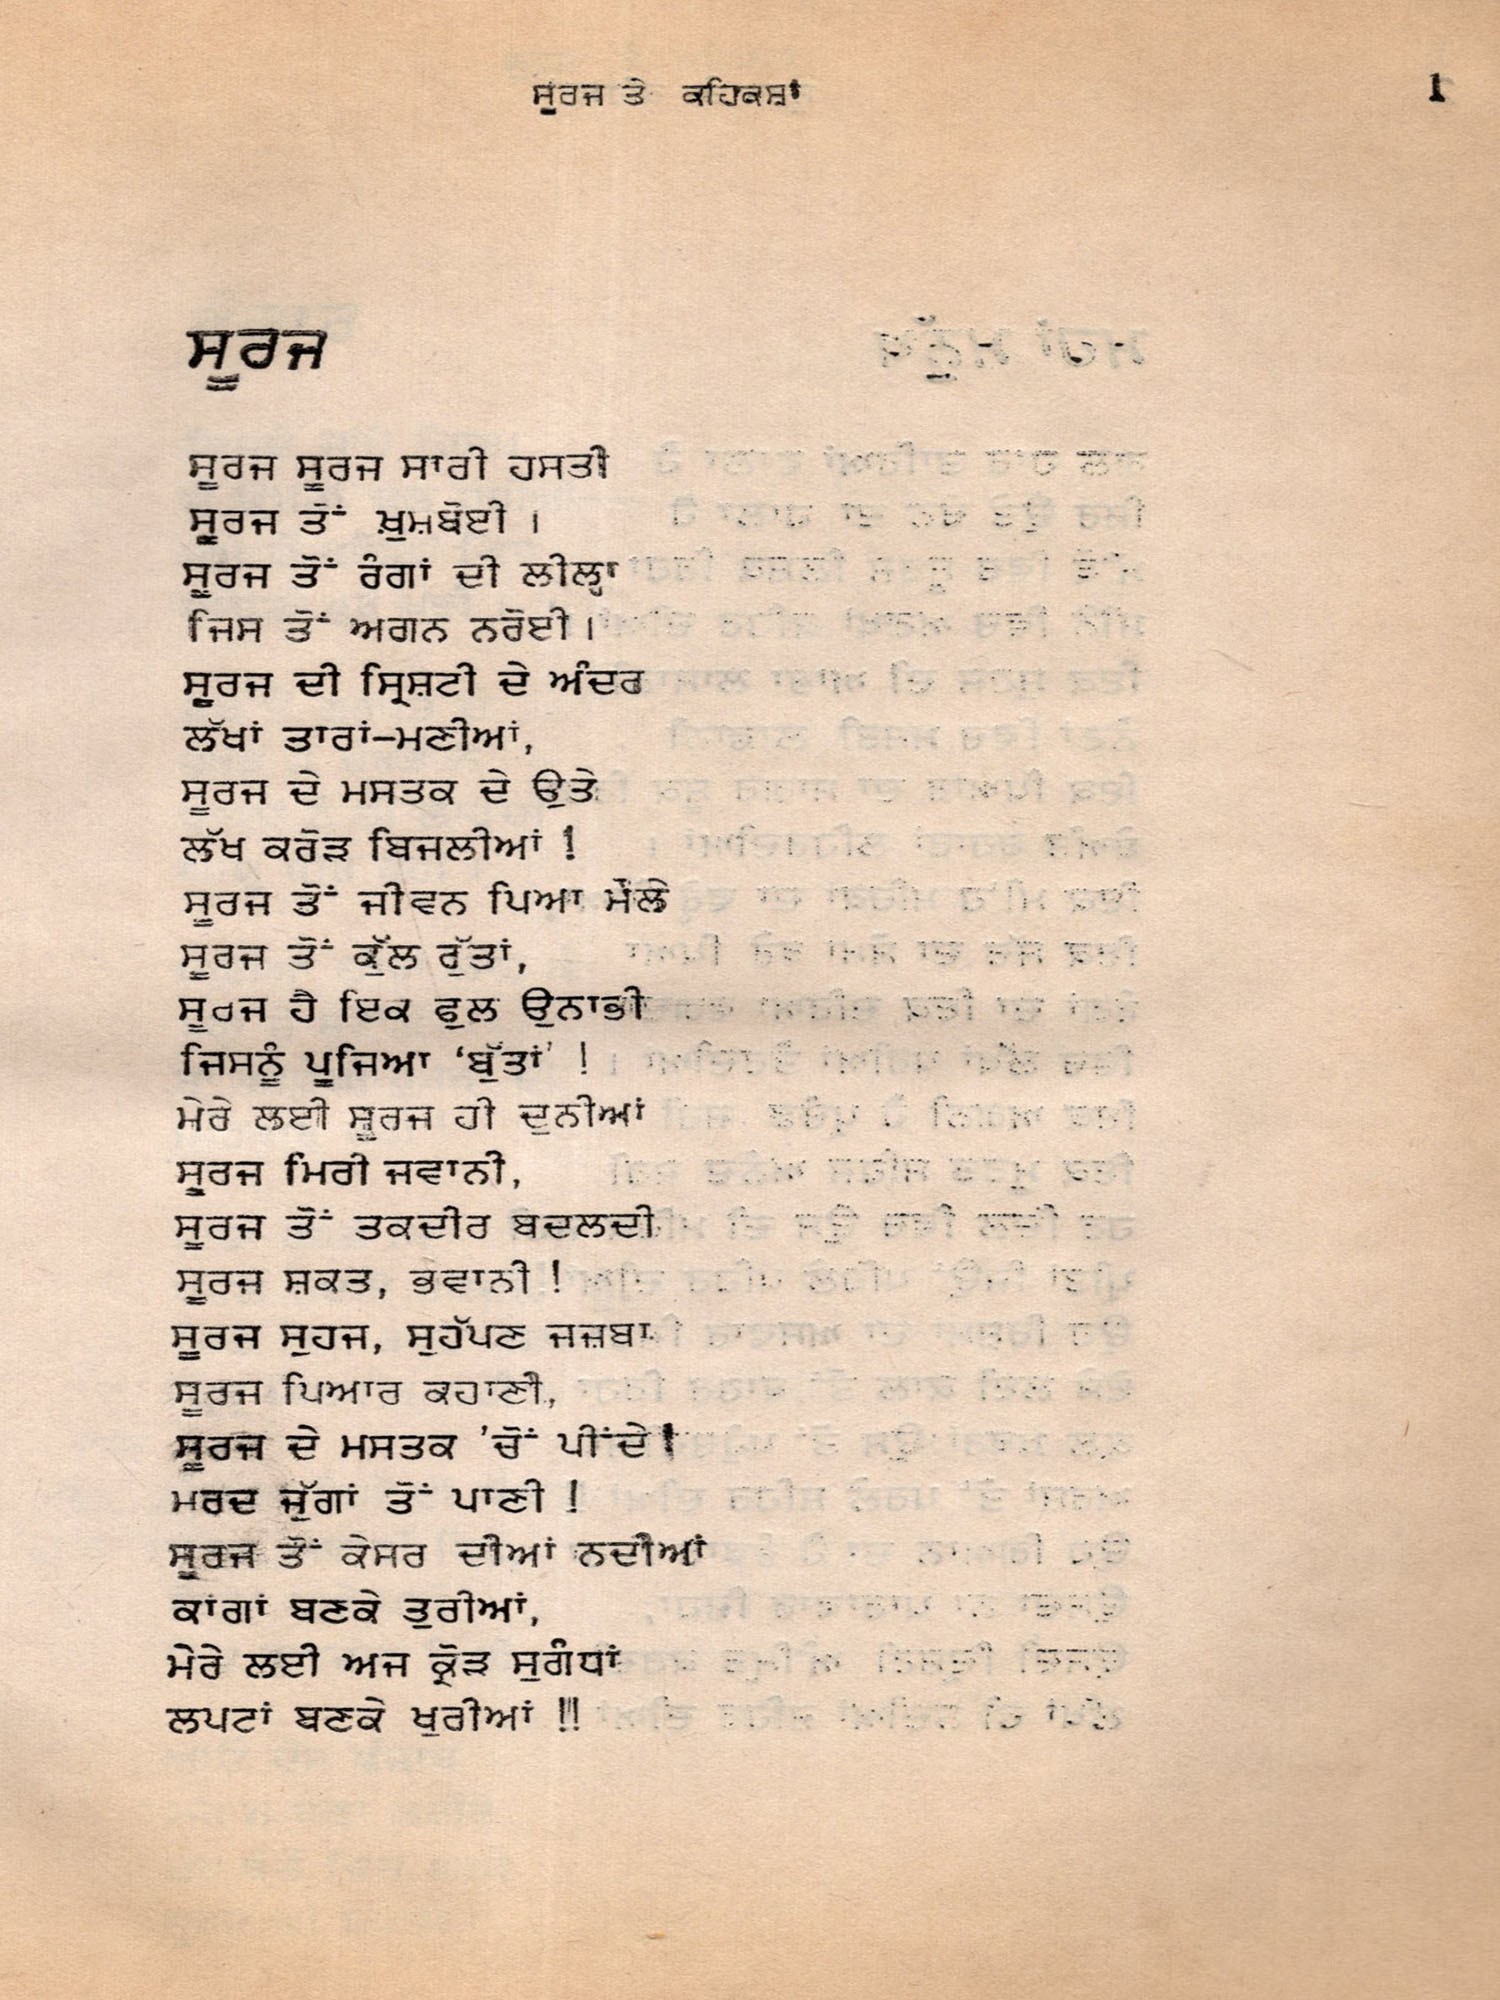 ਸੂਰਜ ਤੇ ਕਹਿਕਸ਼ਾਂ
1
ਸੂਰਜ
ਸੂਰਜ ਸੂਰਜ ਸਾਰੀ ਹਸਤੀ
ਸੂਰਜ ਤੋਂ ਖ਼ੁਸ਼ਬੋਈ ।
ਸੂਰਜ ਤੋਂ ਰੰਗਾਂ ਦੀ ਲੀਲ੍ਹਾ
ਜਿਸ ਤੋਂ ਅਗਨ ਨਰੋਈ ।
ਸੂਰਜ ਦੀ ਸ੍ਰਿਸ਼ਟੀ ਦੇ ਅੰਦਰ
ਲੱਖਾਂ ਤਾਰਾਂ–ਮਣੀਆਂ,
ਸੂਰਜ ਦੇ ਮਸਤਕ ਦੇ ਉਤੇ
ਲੱਖ ਕਰੋੜ ਬਿਜਲੀਆਂ !
ਸੂਰਜ ਤੋਂ ਜੀਵਨ ਪਿਆ ਮੌਲੇ
ਸੂਰਜ ਤੋਂ ਕੁੱਲ ਰੁੱਤਾਂ,
ਸੂਰਜ ਹੈ ਇਕ ਫੁਲ ਉਨਾਭੀ
ਜਿਸਨੂੰ ਪੂਜਿਆ ‘ਬੁੱਤਾਂ’ !
ਮੇਰੇ ਲਈ ਸੂਰਜ ਹੀ ਦੁਨੀਆਂ
ਸੂਰਜ ਮਿਰੀ ਜਵਾਨੀ,
ਸੂਰਜ ਤੋਂ ਤਕਦੀਰ ਬਦਲਦੀ
ਸੂਰਜ ਸ਼ਕਤ, ਭਵਾਨੀ !
ਸੂਰਜ ਸੁਹਜ, ਸੁਹੱਪਣ ਜਜ਼ਬਾ
ਸੂਰਜ ਪਿਆਰ ਕਹਾਣੀ,
ਸੂਰਜ ਦੇ ਮਸਤਕ ’ਚੋਂ ਪੀਂਦੇ !
ਮਰਦ ਜੁੱਗਾਂ ਤੋਂ ਪਾਣੀ !
ਸੂਰਜ ਤੋਂ ਕੇਸਰ ਦੀਆਂ ਨਦੀਆਂ
ਕਾਂਗਾਂ ਬਣਕੇ ਤੁਰੀਆਂ,
ਮੇਰੇ ਲਈ ਅਜ ਕ੍ਰੋੜ ਸੁਗੰਧਾਂ
ਲਪਟਾਂ ਬਣਕੇ ਖੁਰੀਆਂ !!